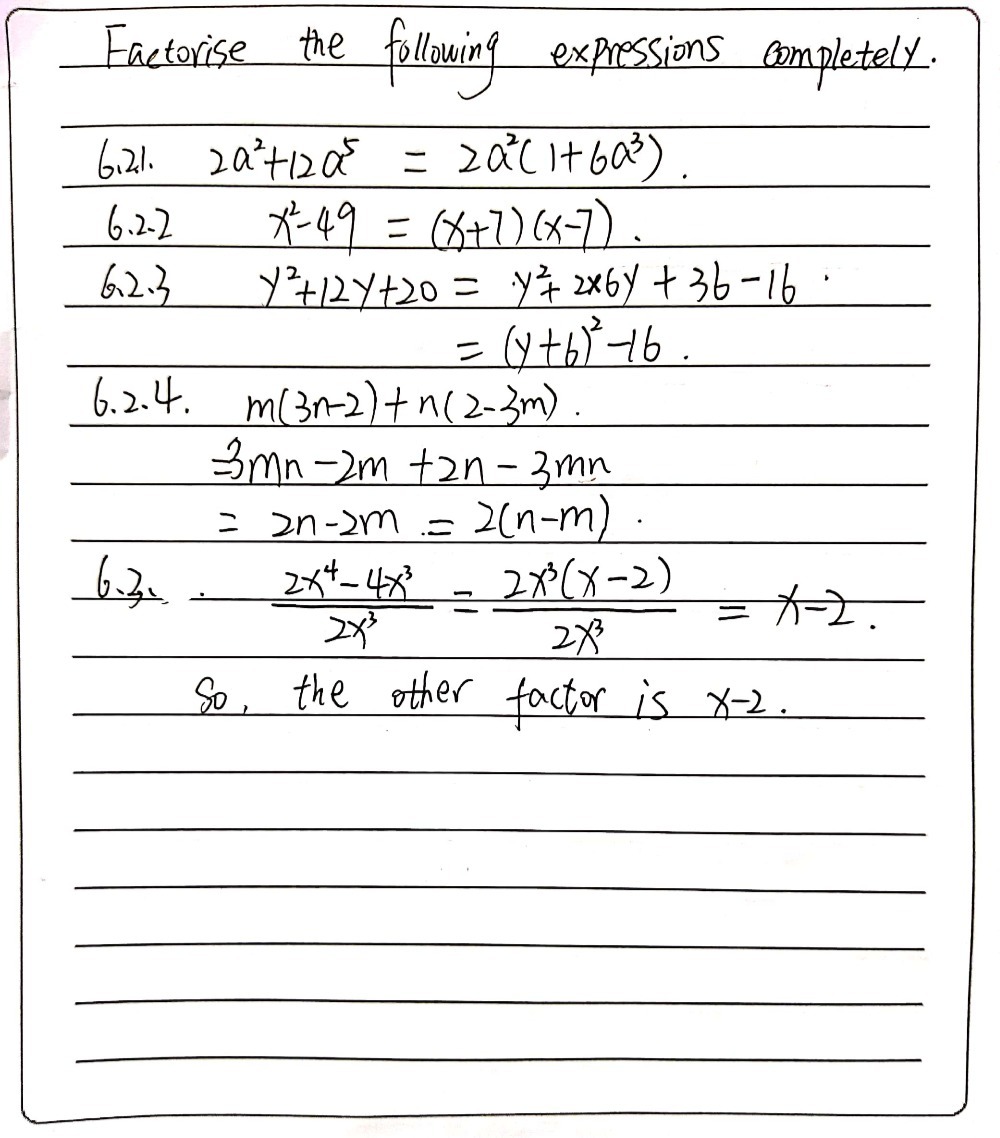 Factorise the following expressions completely.
6.2.1. 2a²+12a⁵ = 2a²(1+6a³).
6.2.2 x²-49 = (x+7)(x-7).
6.2.3 y²+12y+20 = y²+2×6y+36-16.
= (y+6)²-16.
6.2.4. m(3n-2)+n(2-3m).
=3mn-2m+2n-3mn
= 2n-2m = 2(n-m).
6.3. (2x⁴-4x³)/(2x³) = (2x³(x-2))/(2x³) = x-2.
So, the other factor is x-2.